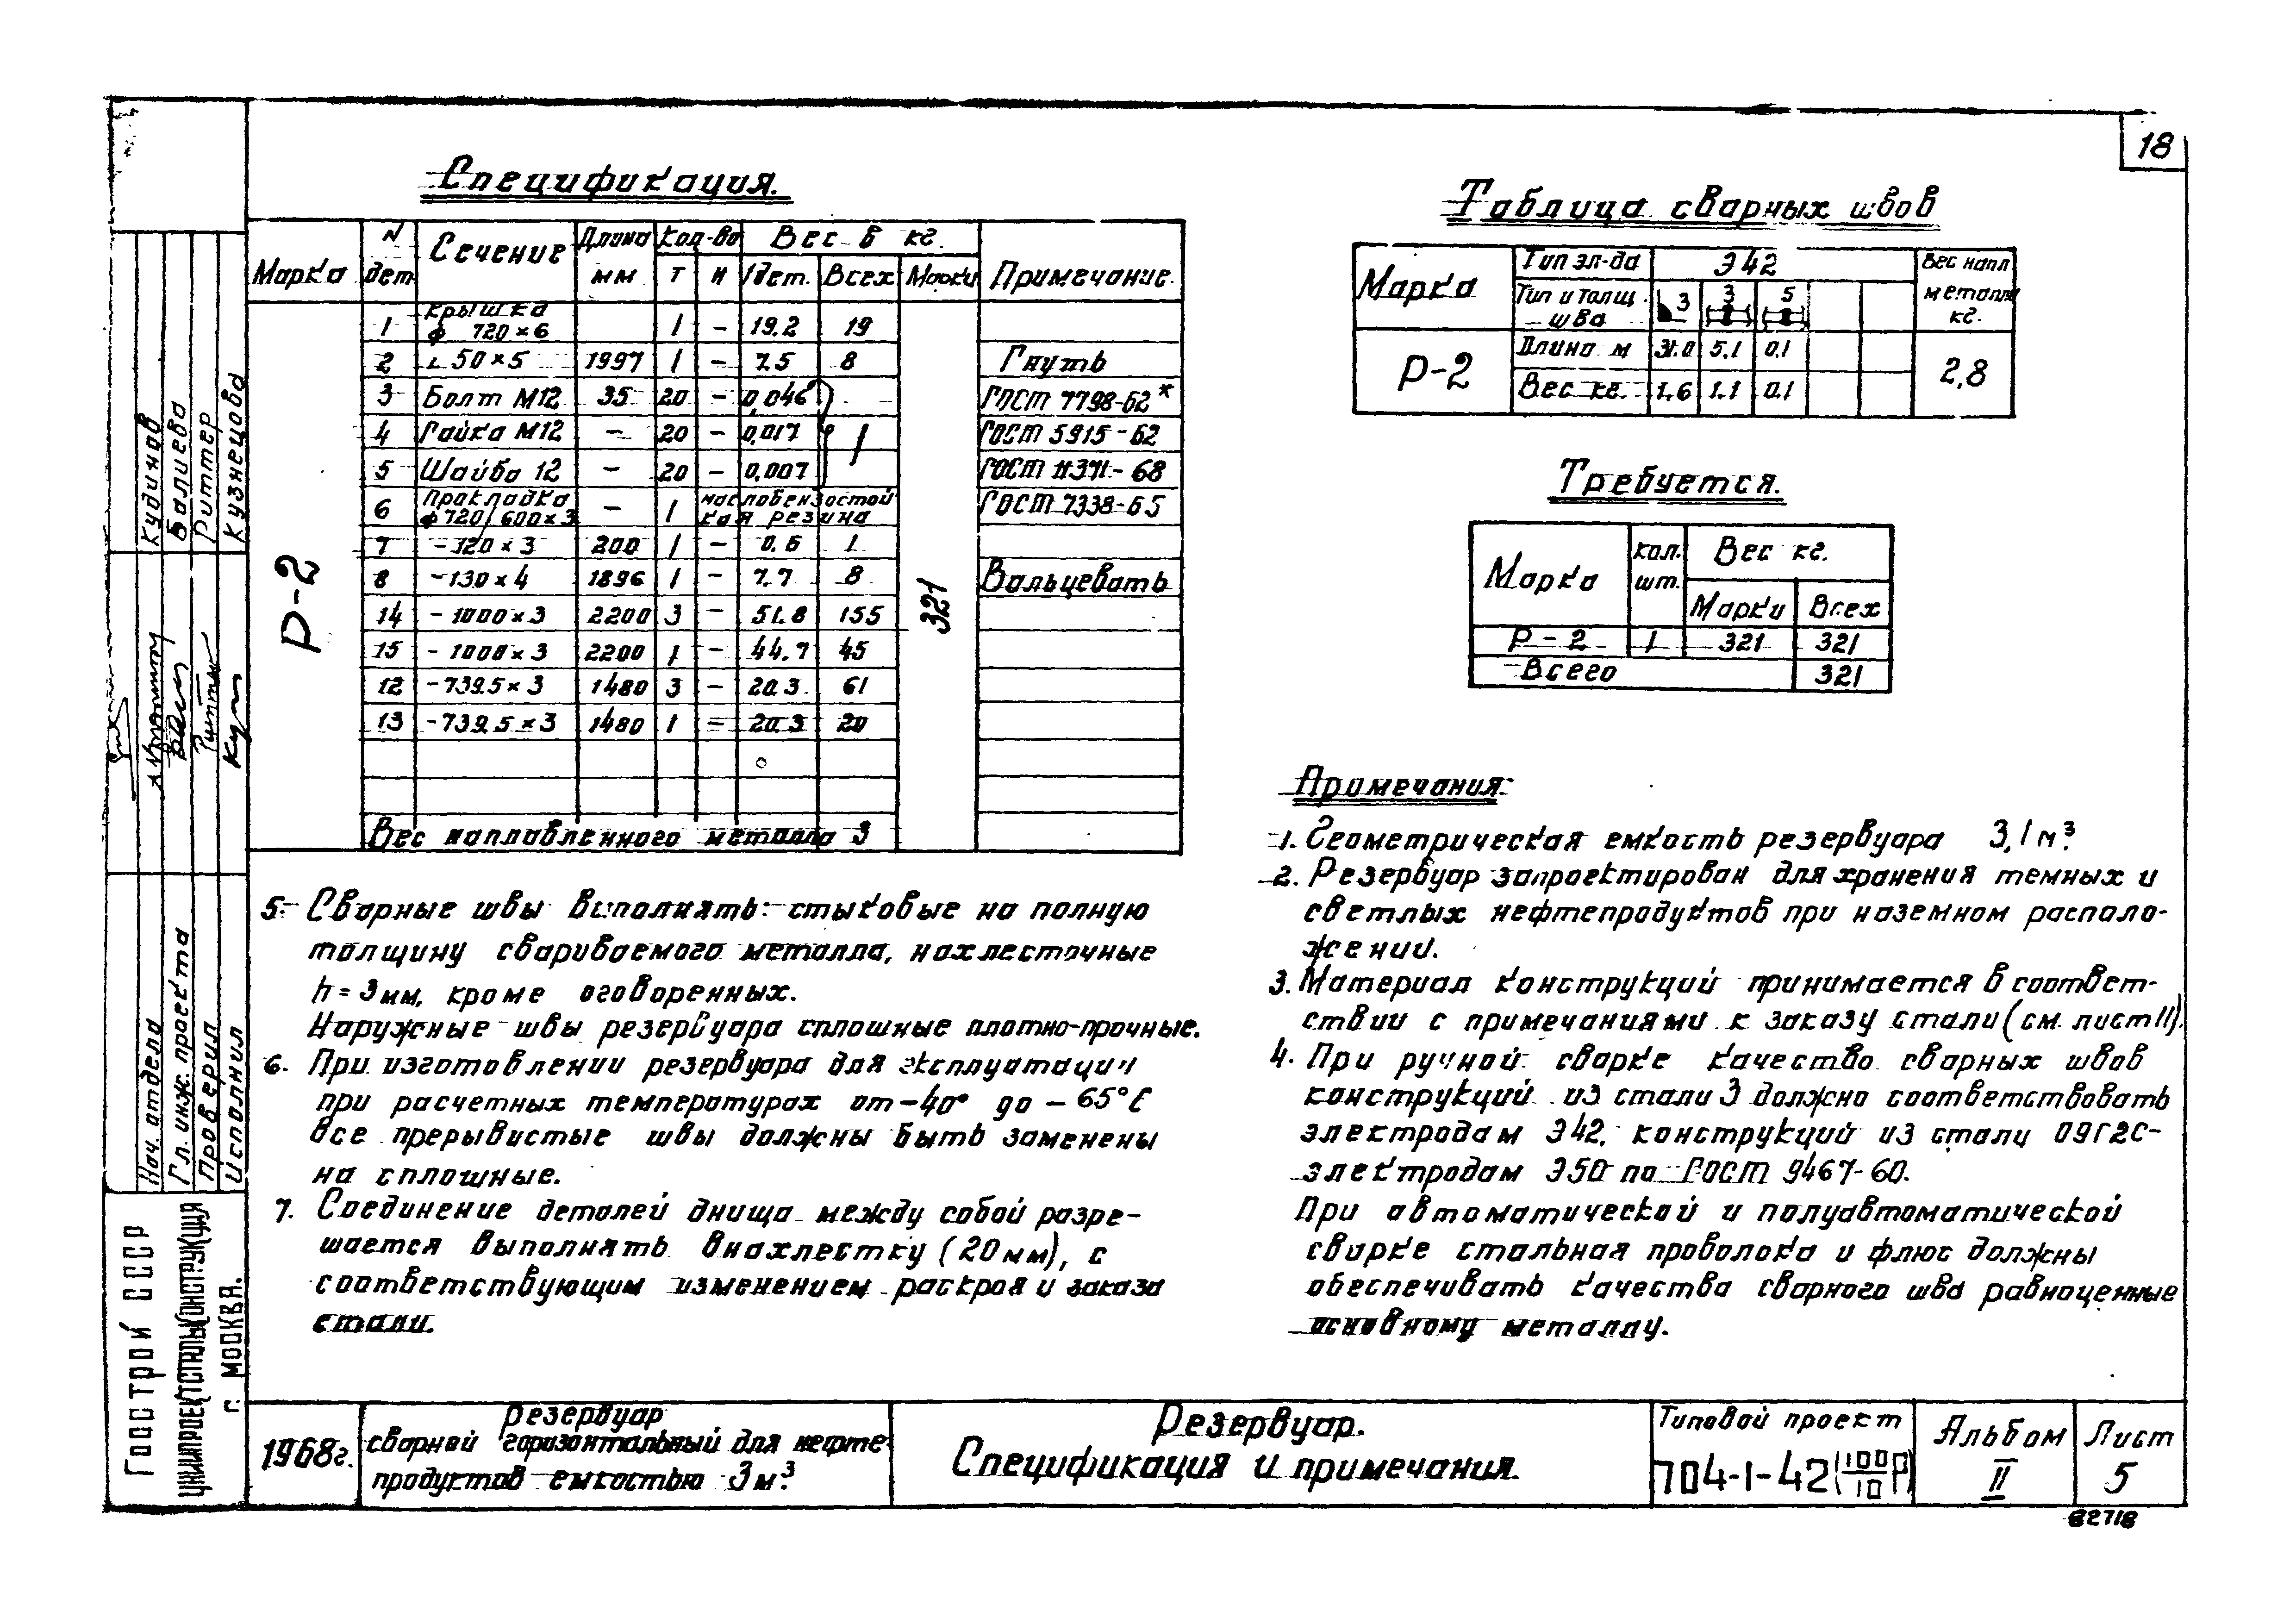 18
Спецификация.
Марка N дет Сечение Длина мм Кол-во Вес в кг. Примечание.
Т Н 1дет. Всех Марки
Р-2 321
1 Крышка ф 720×6 1 – 19.2 19
2 ∟50×5 1997 1 – 7.5 8 Гнуть
3 Болт М12 35 20 – 0,046 ГОСТ 7798-62*
4 Гайка М12 – 20 – 0,017 1 ГОСТ 5915-62
5 Шайба 12 – 20 – 0,007 ГОСТ 11371-68
6 Прокладка ф720/600×3 – 1 маслобензостойкая резина ГОСТ 7338-65
7 -120×3 200 1 – 0.6 1
8 -130×4 1896 1 – 7.7 8 Вальцевать
14 -1000×3 2200 3 – 51.8 155
15 -1000×3 2200 1 – 44.7 45
12 -739.5×3 1480 3 – 20.3 61
13 -739.5×3 1480 1 = 20.3 20
Вес наплавленного металла 3
Таблица сварных швов
Марка Тип эл-да Э42 Вес напл металла кг.
Тип и толщ. шва 3 3 5
Р-2 Длина м 31.0 5.1 0.1 2,8
Вес кг. 1.6 1.1 0.1
Требуется.
Марка кол. шт. Вес кг.
Марки Всех
Р-2 1 321 321
Всего 321
Примечания:
1. Геометрическая емкость резервуара 3,1 м³.
2. Резервуар запроектирован для хранения темных и
светлых нефтепродуктов при наземном располо-
жении.
3. Материал конструкций принимается в соответ-
ствии с примечаниями к заказу стали (см. лист 11).
4. При ручной сварке качество сварных швов
конструкций из стали 3 должно соответствовать
электродам Э42, конструкций из стали 09Г2С-
электродам Э50 по ГОСТ 9467-60.
При автоматической и полуавтоматической
сварке стальная проволока и флюс должны
обеспечивать качества сварного шва равноценные
основному металлу.
5. Сварные швы выполнять: стыковые на полную
толщину свариваемого металла, нахлесточные
h=3мм, кроме оговоренных.
Наружные швы резервуара сплошные плотно-прочные.
6. При изготовлении резервуара для эксплуатации
при расчетных температурах от -40° до -65°С
все прерывистые швы должны быть заменены
на сплошные.
7. Соединение деталей днища между собой разре-
шается выполнять внахлестку (20мм), с
соответствующим изменением раскроя и заказа
стали.
Нач. отдела Кудинов
Гл. инж. проекта Валиева
Проверил Риттер
Исполнил Кузнецова
Госстрой СССР
ЦНИИПРОЕКТСТАЛЬКОНСТРУКЦИЯ
г. МОСКВА.
1968г.
Резервуар
сварной горизонтальный для нефте-
продуктов емкостью 3м³.
Резервуар.
Спецификация и примечания.
Типовой проект
704-1-42(100/10 Р)
Альбом
II
Лист
5
82718